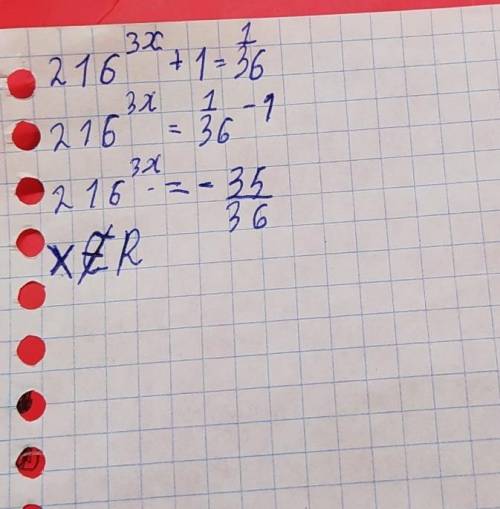 216^{3x} + 1 = \frac{1}{36}
216^{3x} = \frac{1}{36} - 1
216^{3x} = - \frac{35}{36}
x ∉ R